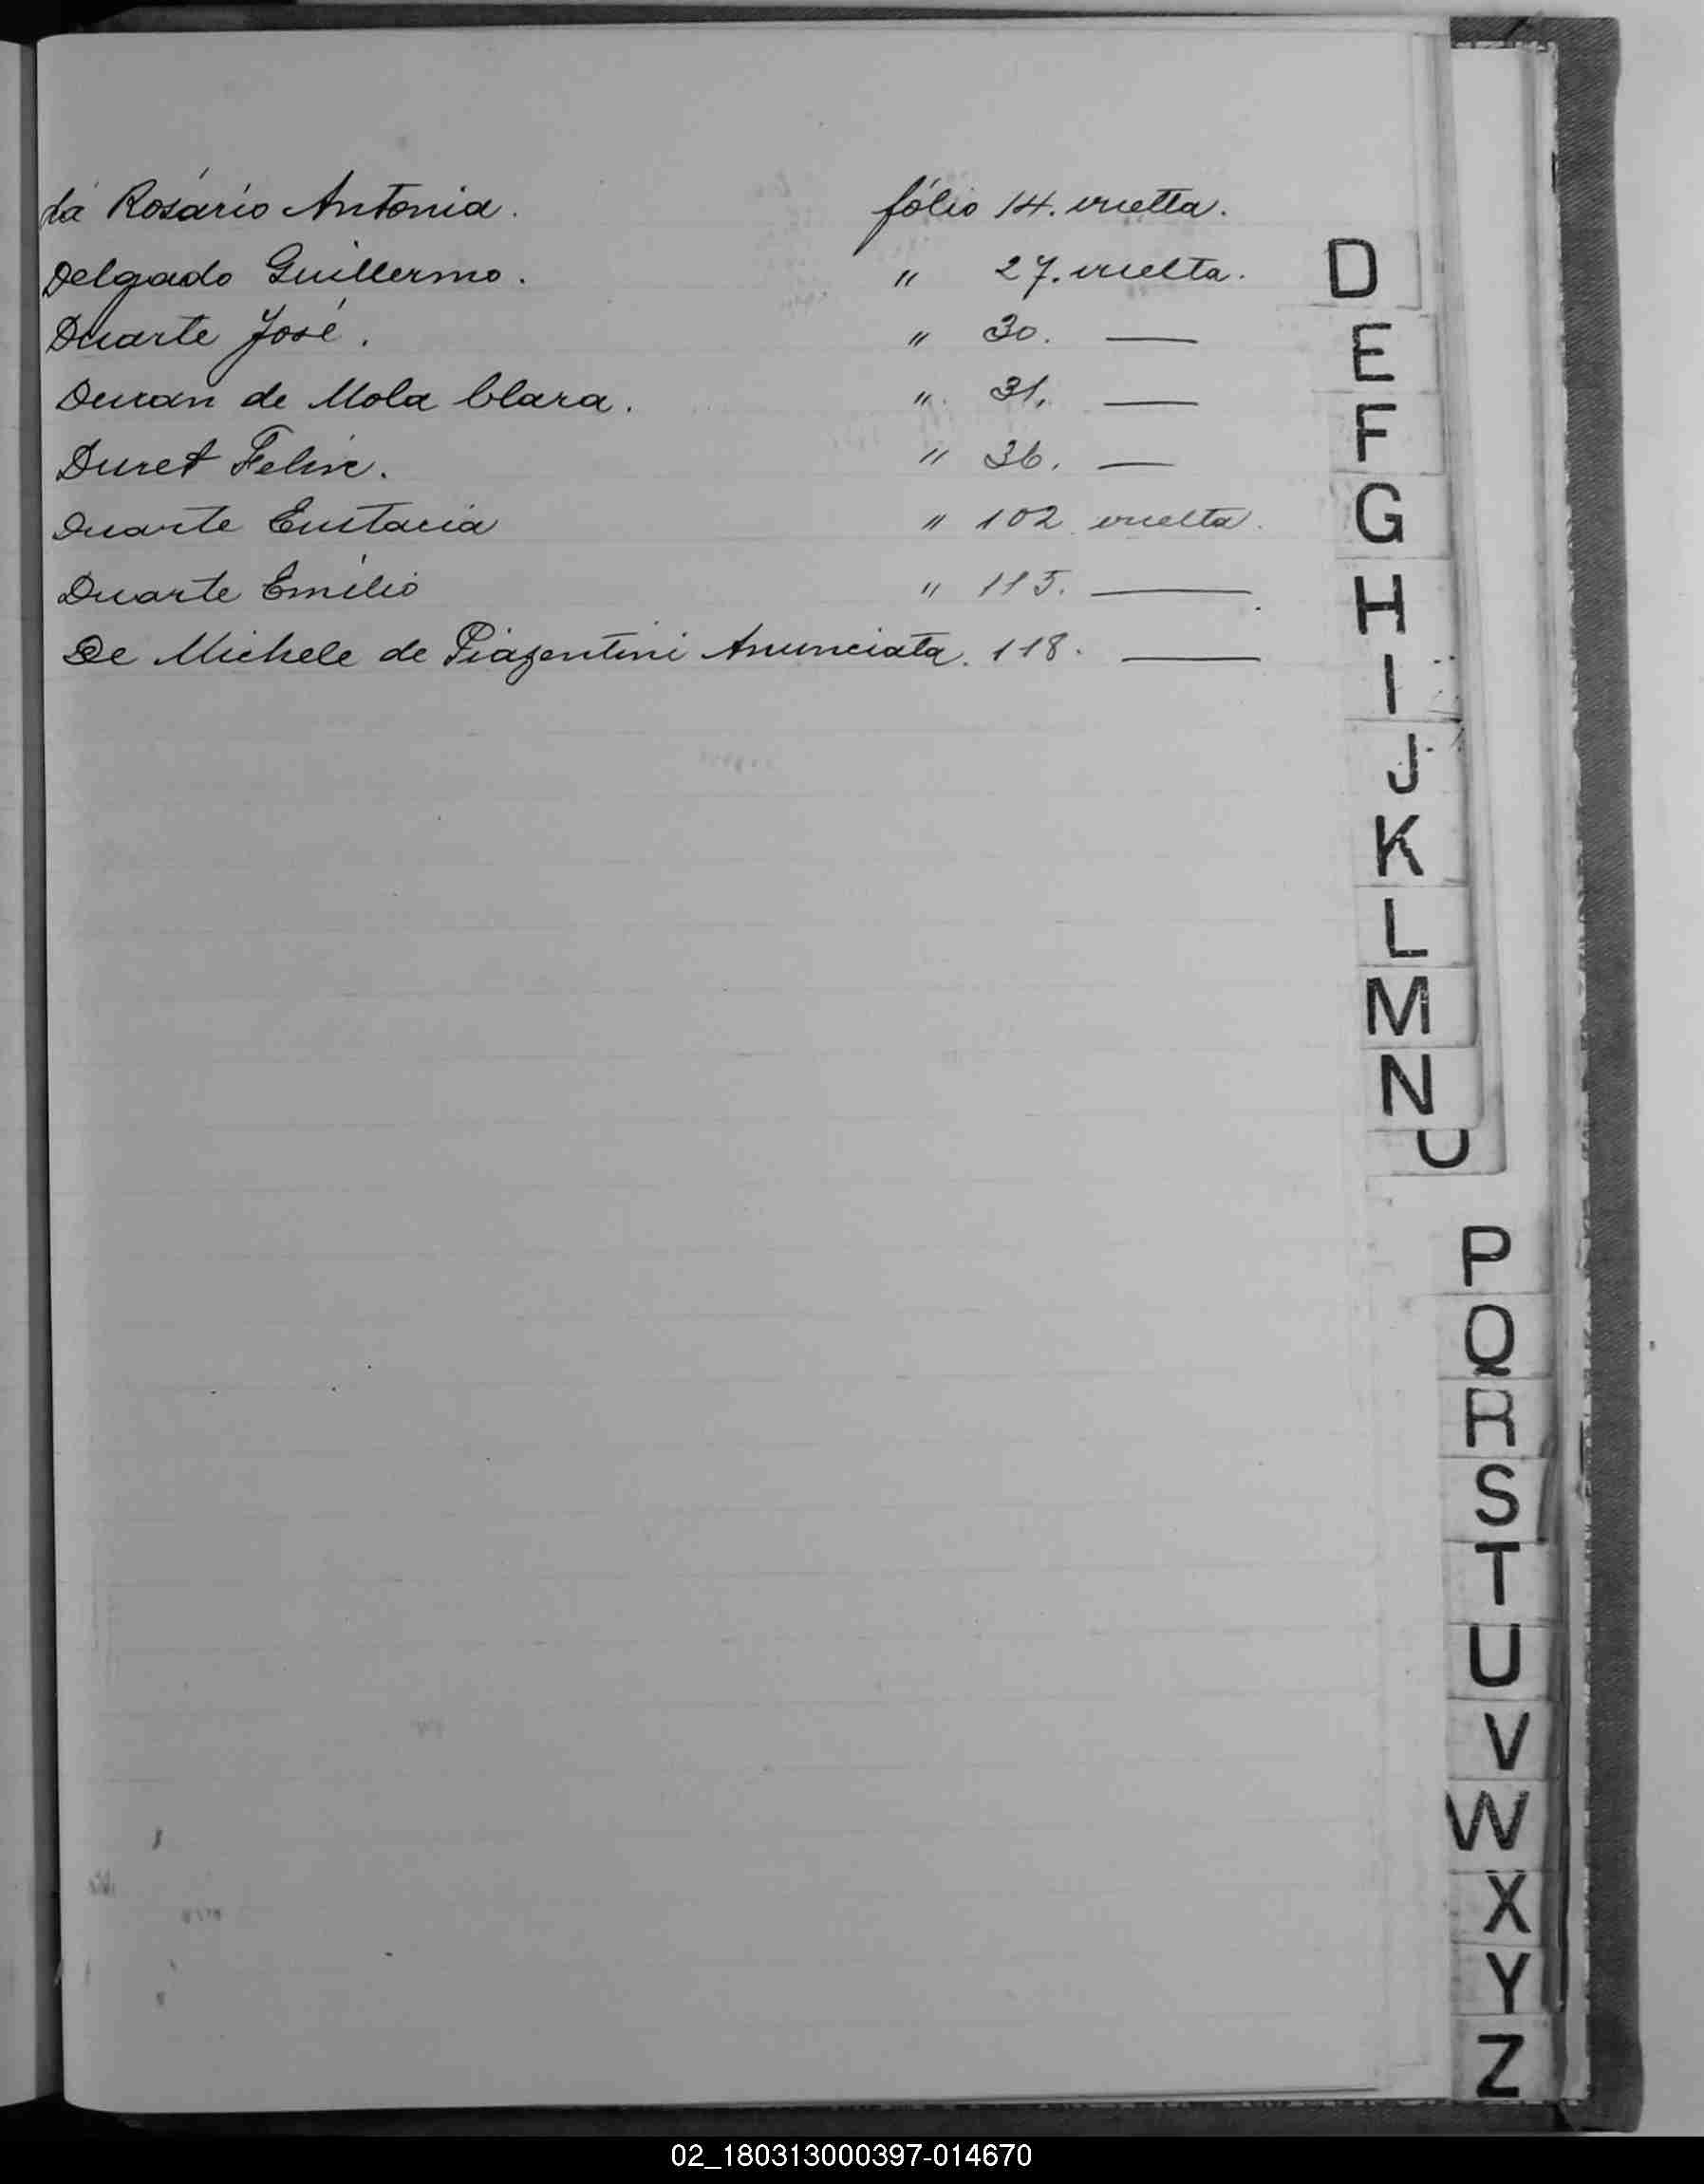 da Rosário Antonia. fólio 14. vuelta.
Delgado Guillermo. " 27. vuelta.
Duarte José. " 30. —
Duran de Mola Clara. " 31. —
Duret Felix. " 36. —
Duarte Eustacia " 102 vuelta.
Duarte Emilio " 115. —
De Michele de Piazentini Anunciata. 118. —
D
E
F
G
H
I
J
K
L
M
N
O
P
Q
R
S
T
U
V
W
X
Y
Z
02_180313000397-014670